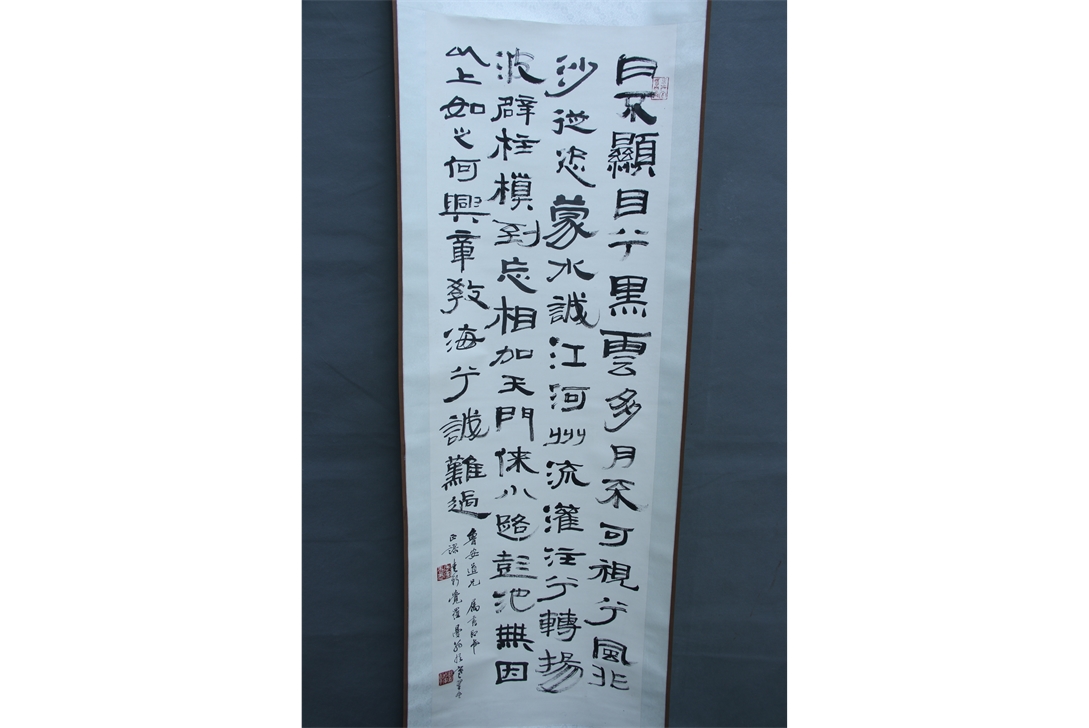 日不顯目兮黑雲多月不可視兮風非
沙從恣蒙水誠江河州流灌注兮轉揚
波辟柱槙到忘相加天門俫小路彭池無因
以上如之何興章教海兮誠難過
魯安道兄屬書即希
正